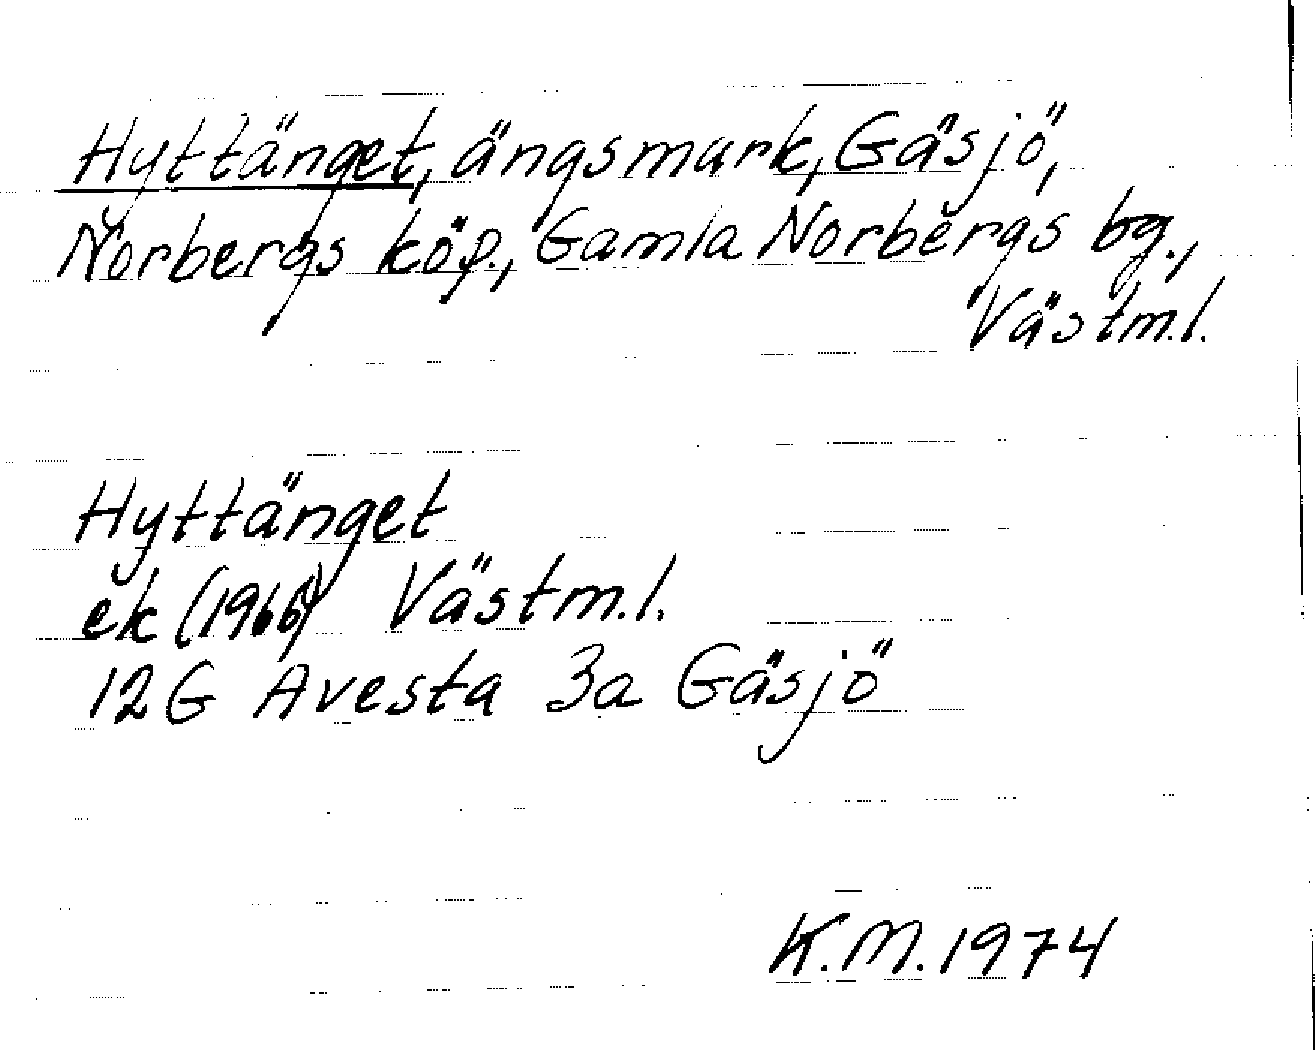 Hyttänget, ängsmark, Gäsjö,
Norbergs köp., Gamla Norbergs bg.,
Västm.l.
Hyttänget
ek (1966) Västm.l.
12G Avesta 3a Gäsjö
K.M. 1974